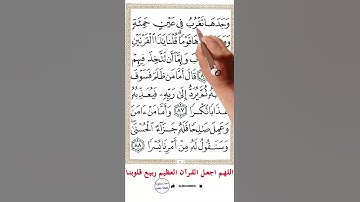 وَجَدَهَا تَغْرُبُ فِي عَيْنٍ حَمِئَةٍ
قَوْمًا قُلْنَا يَٰذَا ٱلْقَرْنَيْنِ
وَإِمَّآ أَن تَتَّخِذَ فِيهِمْ
قَالَ أَمَّا مَن ظَلَمَ فَسَوْفَ
ثُمَّ يُرَدُّ إِلَىٰ رَبِّهِۦ فَيُعَذِّبُهُۥ
عَذَابًا نُّكْرًا ٨٧ وَأَمَّا مَنْ ءَامَنَ
وَعَمِلَ صَٰلِحًا فَلَهُۥ جَزَآءً ٱلْحُسْنَىٰ
وَسَنَقُولُ لَهُۥ مِنْ أَمْرِنَا يُسْرًا ٨٨
اللهم اجعل القرآن العظيم ربيع قلوبنا
SUBSCRIBE